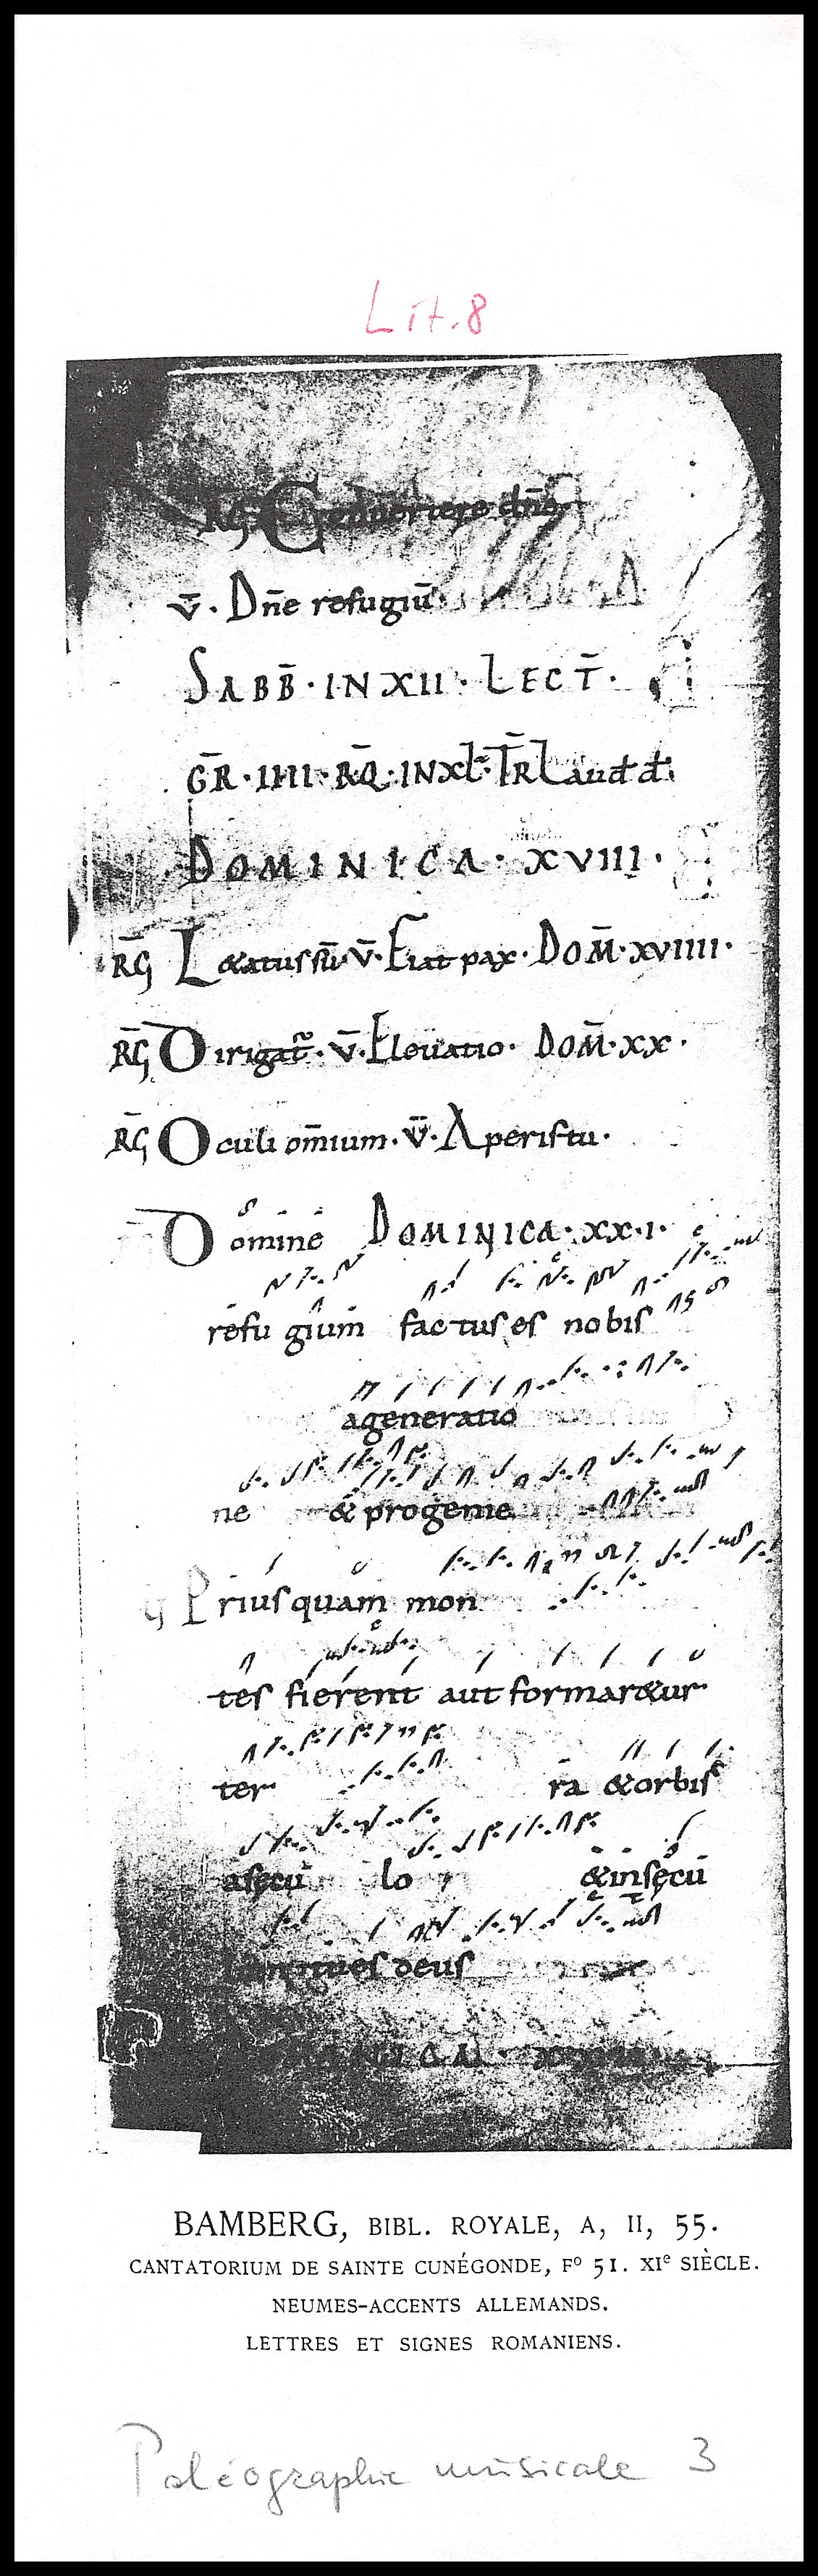 Lit. 8
R̄G Conuertere dn̄e
v̄. Dn̄e refugiū
SABB̄·IN XII·LECT̄·
GR̄·IIII·RQ̄·INXL·TR̄ Laud d̄·
DOMINICA·XVIII·
R̄G L&atus sū·v̄·Fiat pax·DOM̄·XVIIII·
R̄G Dirigat̄·v̄·Eleuatio·DOM̄·XX·
R̄G Oculi om̄ium·v̄·Aperis tu·
Domine DOMINICA·XX·I·
refu gium factus es nobis
a generatio
ne & progenie
Priusquam mon
tes fierent aut formar&ur
ter ra & orbis
a secu lo & in secū
deus
BAMBERG, BIBL. ROYALE, A, II, 55.
CANTATORIUM DE SAINTE CUNÉGONDE, Fº 51. XIe SIÈCLE.
NEUMES-ACCENTS ALLEMANDS.
LETTRES ET SIGNES ROMANIENS.
Paléographie musicale 3